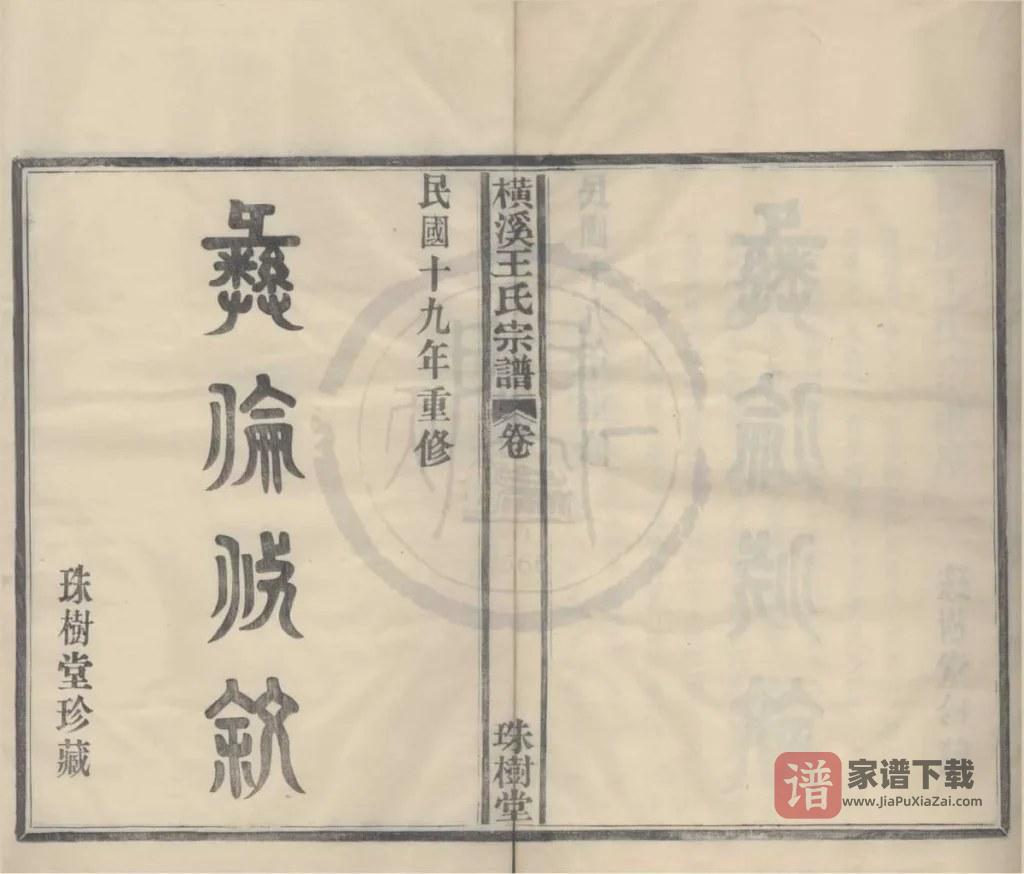 橫溪王氏宗譜
卷
珠樹堂
民國十九年重修
彝倫攸敘
珠樹堂珍藏
谱
家谱下载
www.JiaPuXiaZai.com